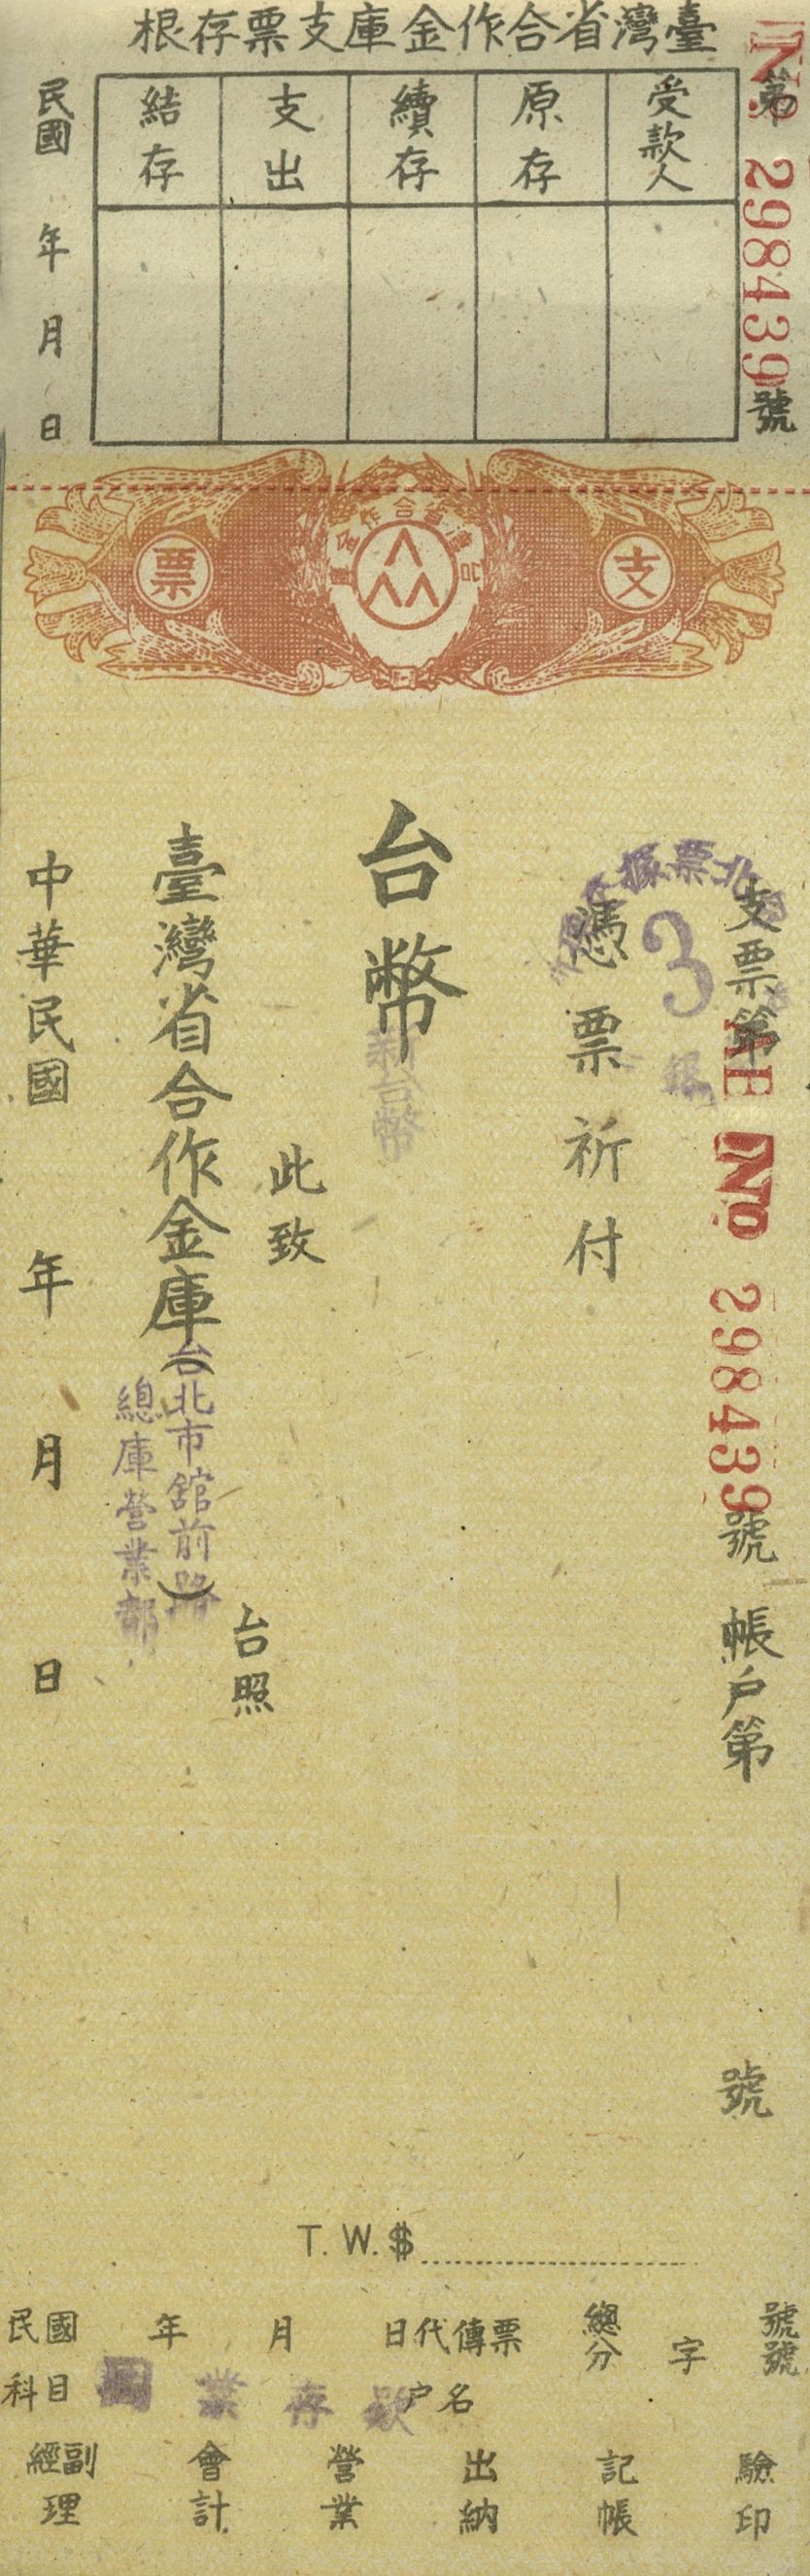 臺灣省合作金庫支票存根
第 No 298439 號
受款人
原存
續存
支出
結存
民國 年 月 日
支
票
支票第 ME No 298439 號 帳戶第 號
3
憑票祈付
台幣
新台幣
此致
臺灣省合作金庫
(台北市舘前路)
總庫營業部
台照
中華民國 年 月 日
T. W. $
民國 年 月 日代傳票 總分 字 號號
科目 業存款 戶名
經副理 會計 營業 出納 記帳 驗印